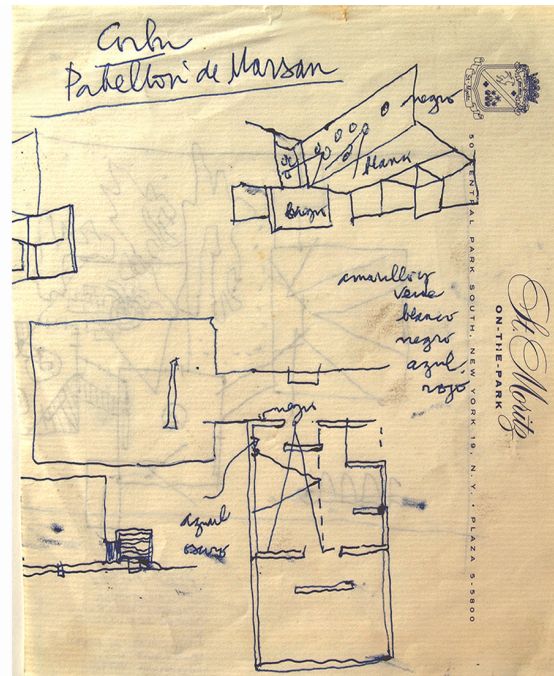 Corbu
Pabellon de Marsan
negro
blanco
negro
amarillo y
verde
blanco
negro
azul,
rojo
negro
azul
St. Moritz
ON-THE-PARK
50 CENTRAL PARK SOUTH, NEW YORK 19, N. Y. • PLAZA 5-5800